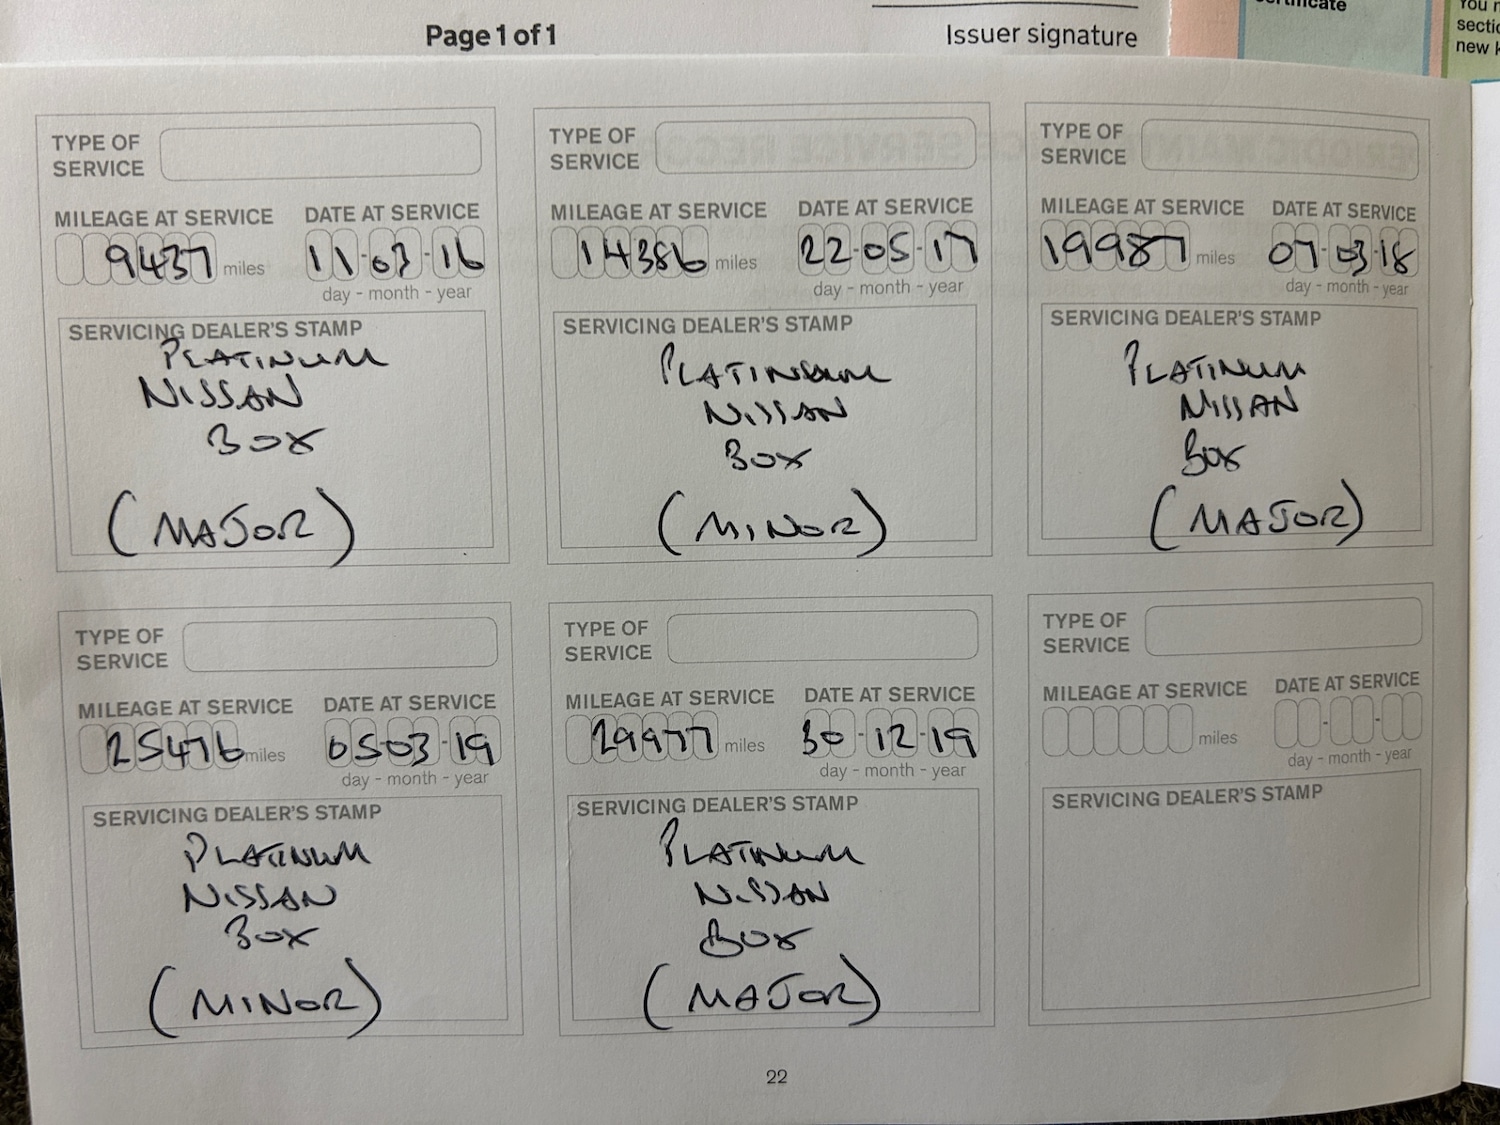 Page 1 of 1
Issuer signature
certificate
You
new
TYPE OF SERVICE
MILEAGE AT SERVICE DATE AT SERVICE
9437 miles 11-03-16
day - month - year
SERVICING DEALER'S STAMP
PLATINUM
NISSAN
BOX
(MAJOR)
TYPE OF SERVICE
MILEAGE AT SERVICE DATE AT SERVICE
14386 miles 22-05-17
day - month - year
SERVICING DEALER'S STAMP
PLATINUM
NISSAN
BOX
(MINOR)
TYPE OF SERVICE
MILEAGE AT SERVICE DATE AT SERVICE
19987 miles 07-03-18
day - month - year
SERVICING DEALER'S STAMP
PLATINUM
NISSAN
BOX
(MAJOR)
TYPE OF SERVICE
MILEAGE AT SERVICE DATE AT SERVICE
25476 miles 05 03-19
day - month - year
SERVICING DEALER'S STAMP
PLATINUM
NISSAN
BOX
(MINOR)
TYPE OF SERVICE
MILEAGE AT SERVICE DATE AT SERVICE
29977 miles 30-12-19
day - month - year
SERVICING DEALER'S STAMP
PLATINUM
NISSAN
BOX
(MAJOR)
TYPE OF SERVICE
MILEAGE AT SERVICE DATE AT SERVICE
miles - -
day - month - year
SERVICING DEALER'S STAMP
22